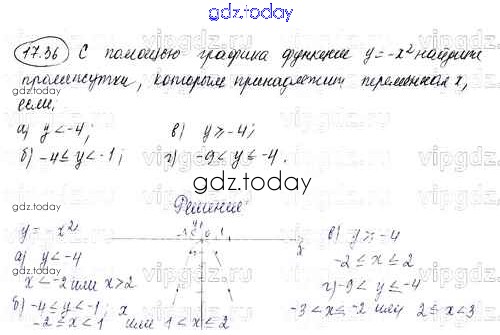 gdz.today
17.36 С помощью графика функции y=-x² найдите
промежутки, которым принадлежит переменная x,
если:
а) y<-4; в) y≥-4;
б) -4≤y<-1; г) -9<y≤-4.
gdz.today
Решение
y= x²
а) y<-4
x<-2 или x>2
б) -4≤y<-1; x
-2≤x<1 или 1<x≤2
в) y≥-4
-2≤x≤2
г) -9<y≤-4
-3<x≤-2 или 2≤x<3
gdz.today
vipgdz